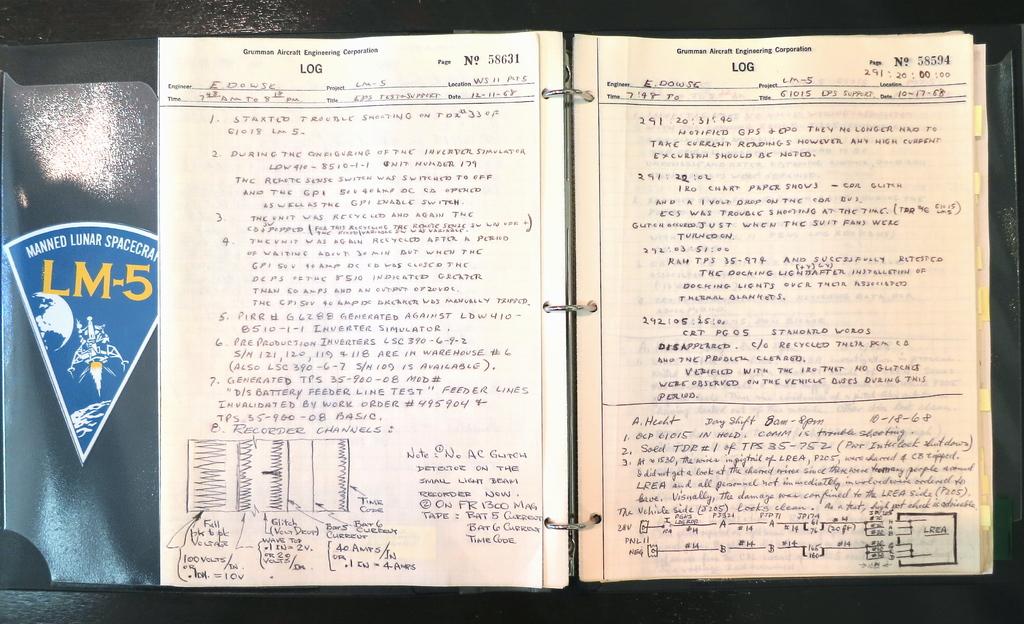 MANNED LUNAR SPACECRA
LM-5
Grumman Aircraft Engineering Corporation
LOG
Page Nº 58631
Engineer E. DOWSE Project LM-5 Location WS 11 PT 5
Time 7 AM TO 8 PM Title EPS TEST SUPPORT Date 12-11-68
1. STARTED TROUBLE SHOOTING ON TDR #33 OF
61018 LM 5.
2. DURING THE CONFIGURING OF THE INVERTER SIMULATOR
LDW 410-8510-1-1 UNIT NUMBER 179
THE REMOTE SENSE SWITCH WAS SWITCHED TO OFF
AND THE GPI 50V 40 AMP DC CB OPENED
AS WELL AS THE GPI ENABLE SWITCH.
3. THE UNIT WAS RECYCLED AND AGAIN THE
CB POPPED (FOR THIS RECYCLING THE REMOTE SENSE SW
4. THE UNIT WAS AGAIN RECYCLED AFTER A PERIOD
OF WAITING ABOUT 30 MIN BUT WHEN THE
GPI 50V 40 AMP DC CB WAS CLOSED THE
DC PS OF THE 8510 INDICATED GREATER
THAN 60 AMPS AND AN OUTPUT OF 20VDC.
THE GPI 50V 40 AMP DC BREAKER WAS MANUALLY TRIPPED.
5. PIRR # G6288 GENERATED AGAINST LDW 410-
8510-1-1 INVERTER SIMULATOR.
6. PREPRODUCTION INVERTERS LSC 390-6-9-2
S/N 121, 120, 119 & 118 ARE IN WAREHOUSE # 6
(ALSO LSC 390-6-7 S/N 109 IS AVAILABLE).
7. GENERATED TPS 35-900-08 MOD #
"D/S BATTERY FEEDER LINE TEST" FEEDER LINES
INVALIDATED BY WORK ORDER # 495904 &
TPS 35-900-08 BASIC.
8. RECORDER CHANNELS:
Note: ① NO AC GLITCH
DETECTOR ON THE
SMALL LIGHT BEAM
RECORDER NOW.
② ON FR 1300 MAG
TAPE: BAT 5 CURRENT
BAT 6 CURRENT
TIME CODE
TIME
CODE
Full
pk to pk
VOLTAGE
Glitch
(VOLT DROP)
.1 IN = 2V.
OR 20
VOLTS/IN
BAT 5 BAT 6
CURRENT
40 AMPS/IN
OR
.1 IN = 4 AMPS
100 VOLTS/IN.
OR
.1 IN. = 10V
Grumman Aircraft Engineering Corporation
LOG
Page Nº 58594
291:20:00:00
Engineer E. DOWSE Project LM-5 Location
Time 7:48 TO Title 61015 EPS SUPPORT Date 10-17-68
291:20:31:40
NOTIFIED GPS & EPO THEY NO LONGER HAD TO
TAKE CURRENT READINGS HOWEVER ANY HIGH CURRENT
EXCURSION SHOULD BE NOTED.
291:22:02
IRO CHART PAPER SHOWS - CDR GLITCH
AND A 1 VOLT DROP ON THE CDR BUS.
ECS WAS TROUBLE SHOOTING AT THE TIME. (TDR 61015 LM-5)
GLITCH OCCURED JUST WHEN THE SUIT FANS WERE
TURNED ON.
292:03:51:00
RAN TPS 35-974 AND SUCCESSFULLY RETESTED
THE DOCKING LIGHT AFTER INSTALLATION OF
DOCKING LIGHTS OVER THEIR ASSOCIATED
THERMAL BLANKETS.
292:05:25:0
CRT PG 05 STANDARD WORDS
DISAPPEARED. C/O RECYCLED THEIR PCM CB
AND THE PROBLEM CLEARED.
VERIFIED WITH THE IRO THAT NO GLITCHES
WERE OBSERVED ON THE VEHICLE BUSES DURING THIS
PERIOD.
A. Hecht Day Shift 8am-8pm 10-18-68
1. OCP 61015 IN HOLD. COMM is trouble shooting.
2. Sold TDR #1 of TPS 35-752 (Pwr Interlock shutdown)
3. At ≈1530, the wires in pigtail of LREA, P205, were charred & CB tripped.
I did not get a look at the charred wires since there were too many people around
LREA and all personnel not immediately involved were ordered to
leave. Visually, the damage was confined to the LREA side (P205).
The Vehicle side (J205) looks clean. As a test,
28V
PNL 11
NEG
#14 A #14 A #14 #4 (20 ft)
#14 B #14 B #14
LREA